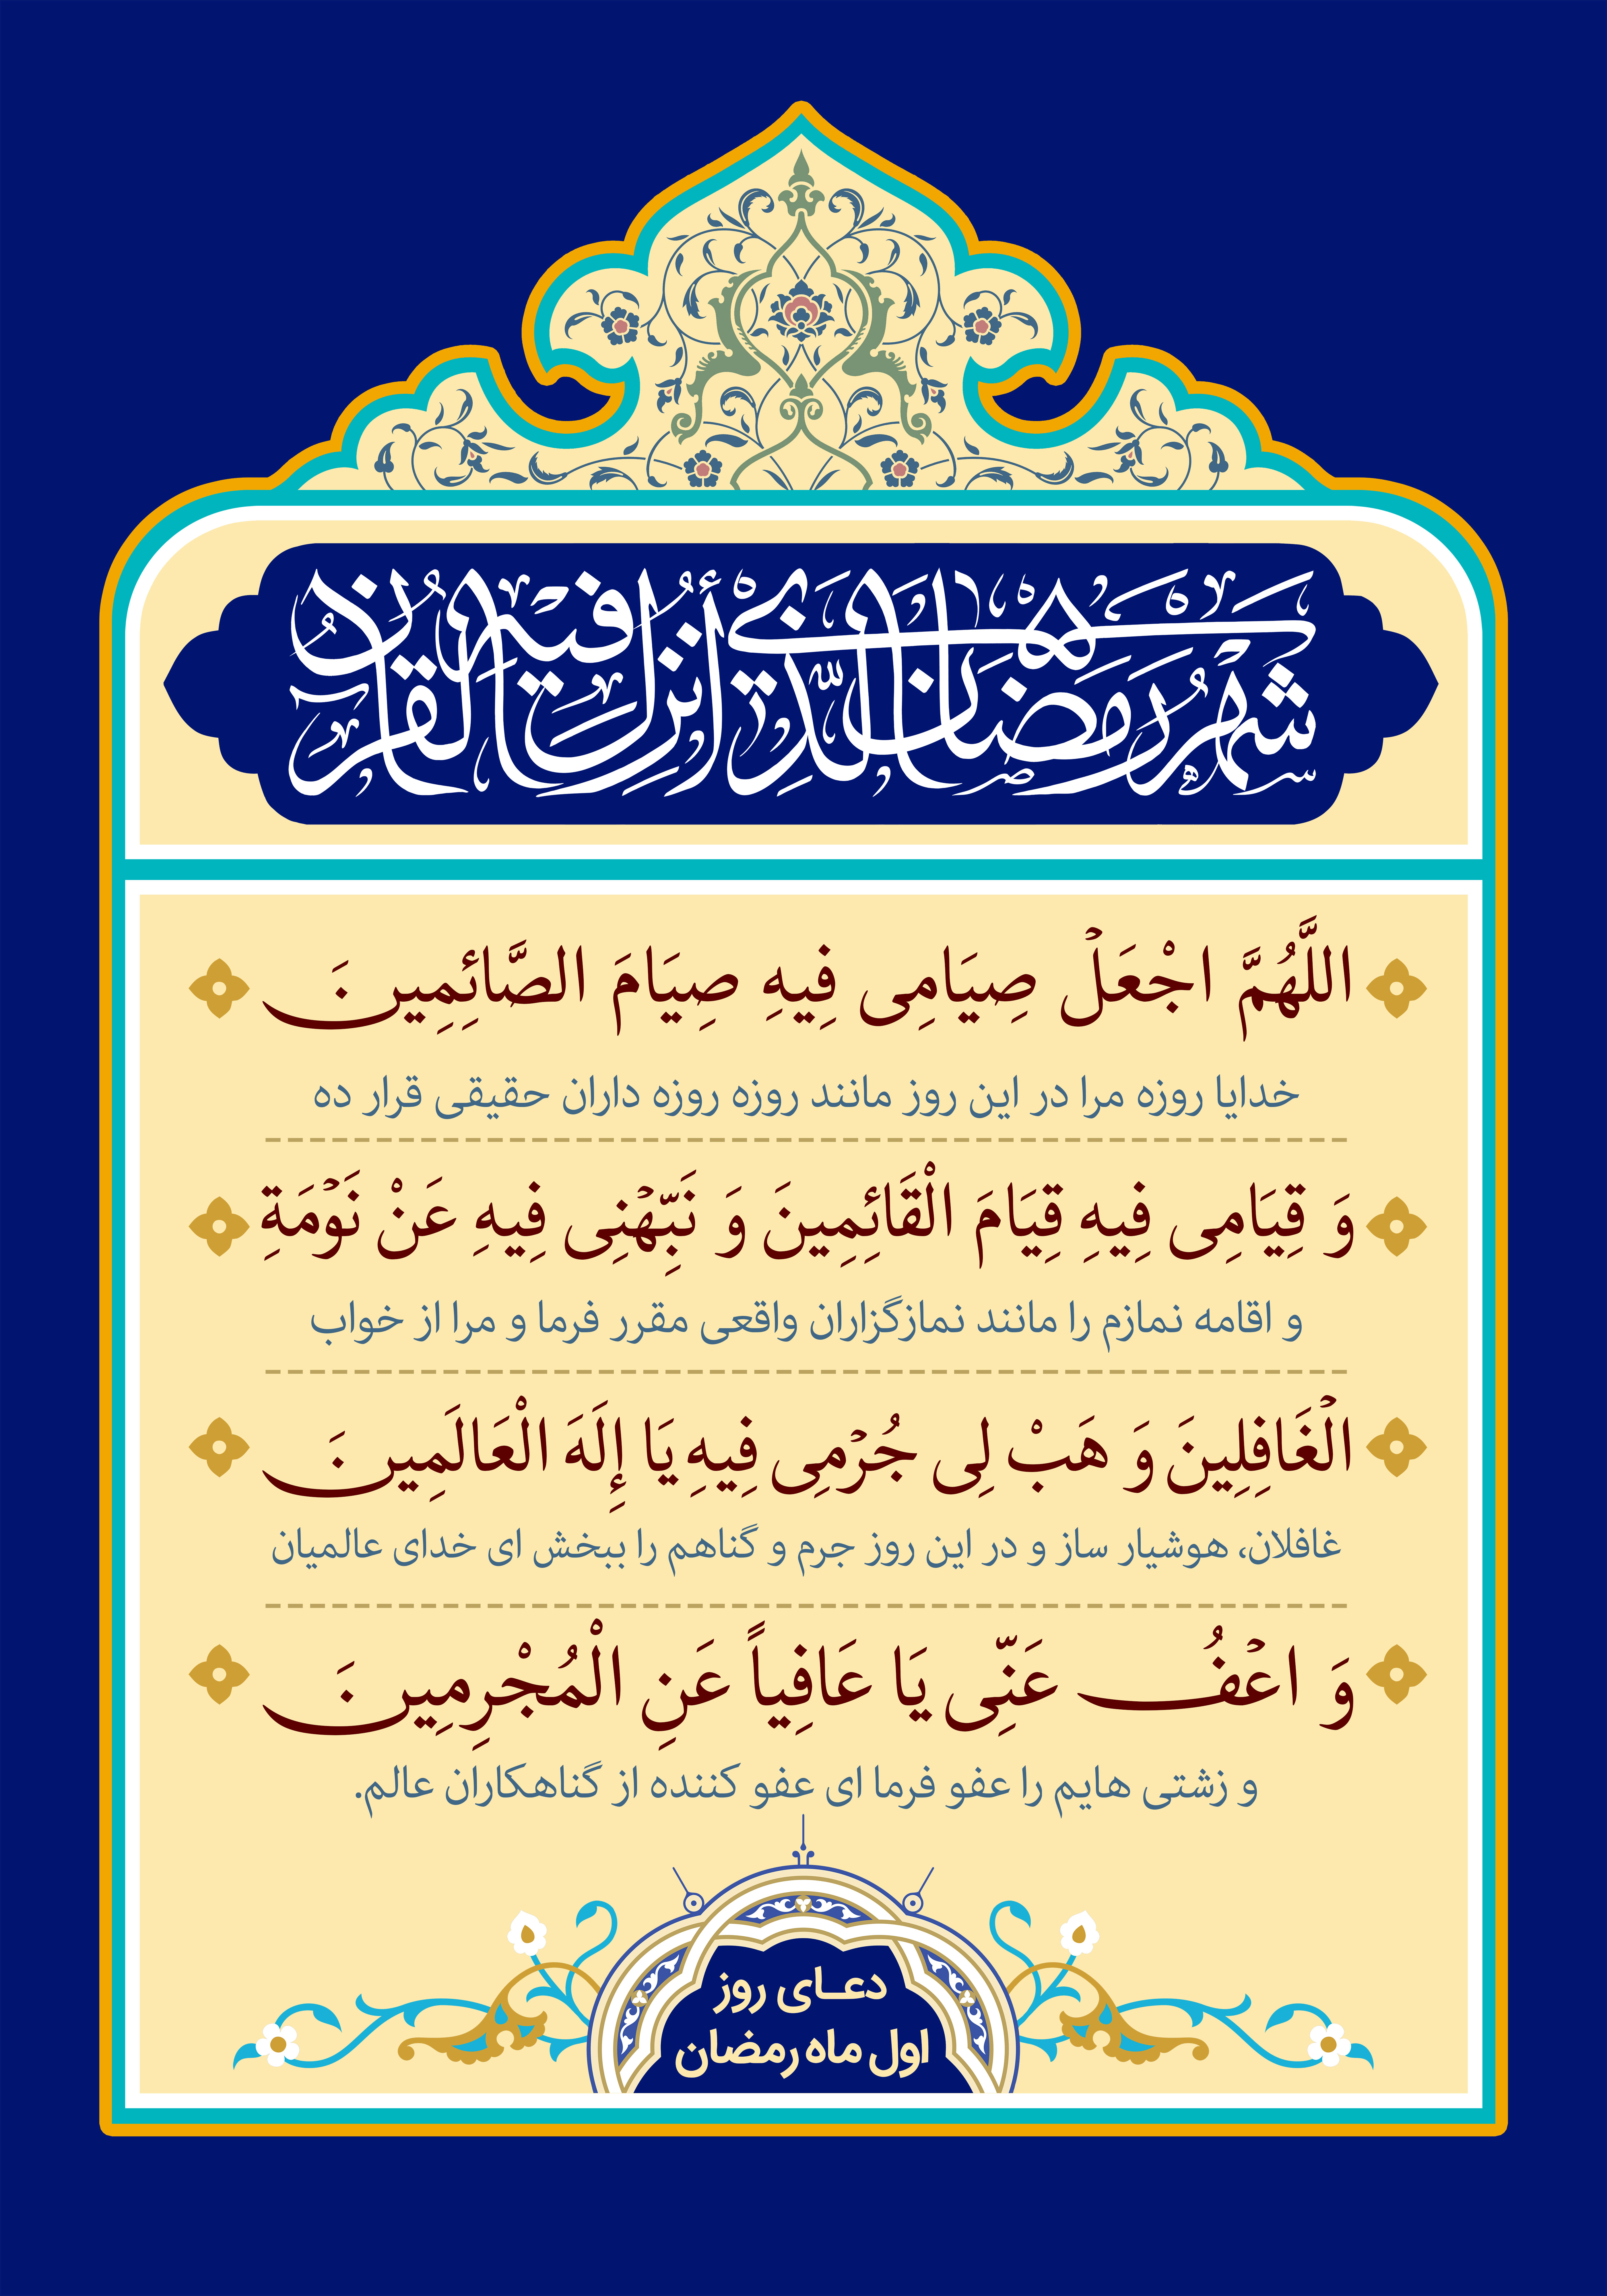 شهر رمضان الّذي أُنزل فيه القرآن
اللَّهُمَّ اجْعَلْ صِيَامِى فِيهِ صِيَامَ الصَّائِمِينَ
خدایا روزه مرا در این روز مانند روزه روزه داران حقیقی قرار ده
وَ قِيَامِى فِيهِ قِيَامَ الْقَائِمِينَ وَ نَبِّهْنِى فِيهِ عَنْ نَوْمَةِ
و اقامه نمازم را مانند نمازگزاران واقعی مقرر فرما و مرا از خواب
الْغَافِلِينَ وَ هَبْ لِى جُرْمِى فِيهِ يَا إِلَهَ الْعَالَمِينَ
غافلان، هوشیار ساز و در این روز جرم و گناهم را ببخش ای خدای عالمیان
وَ اعْفُ عَنِّى يَا عَافِياً عَنِ الْمُجْرِمِينَ
و زشتی هایم را عفو فرما ای عفو کننده از گناهکاران عالم.
دعـای روز
اول ماه رمضان